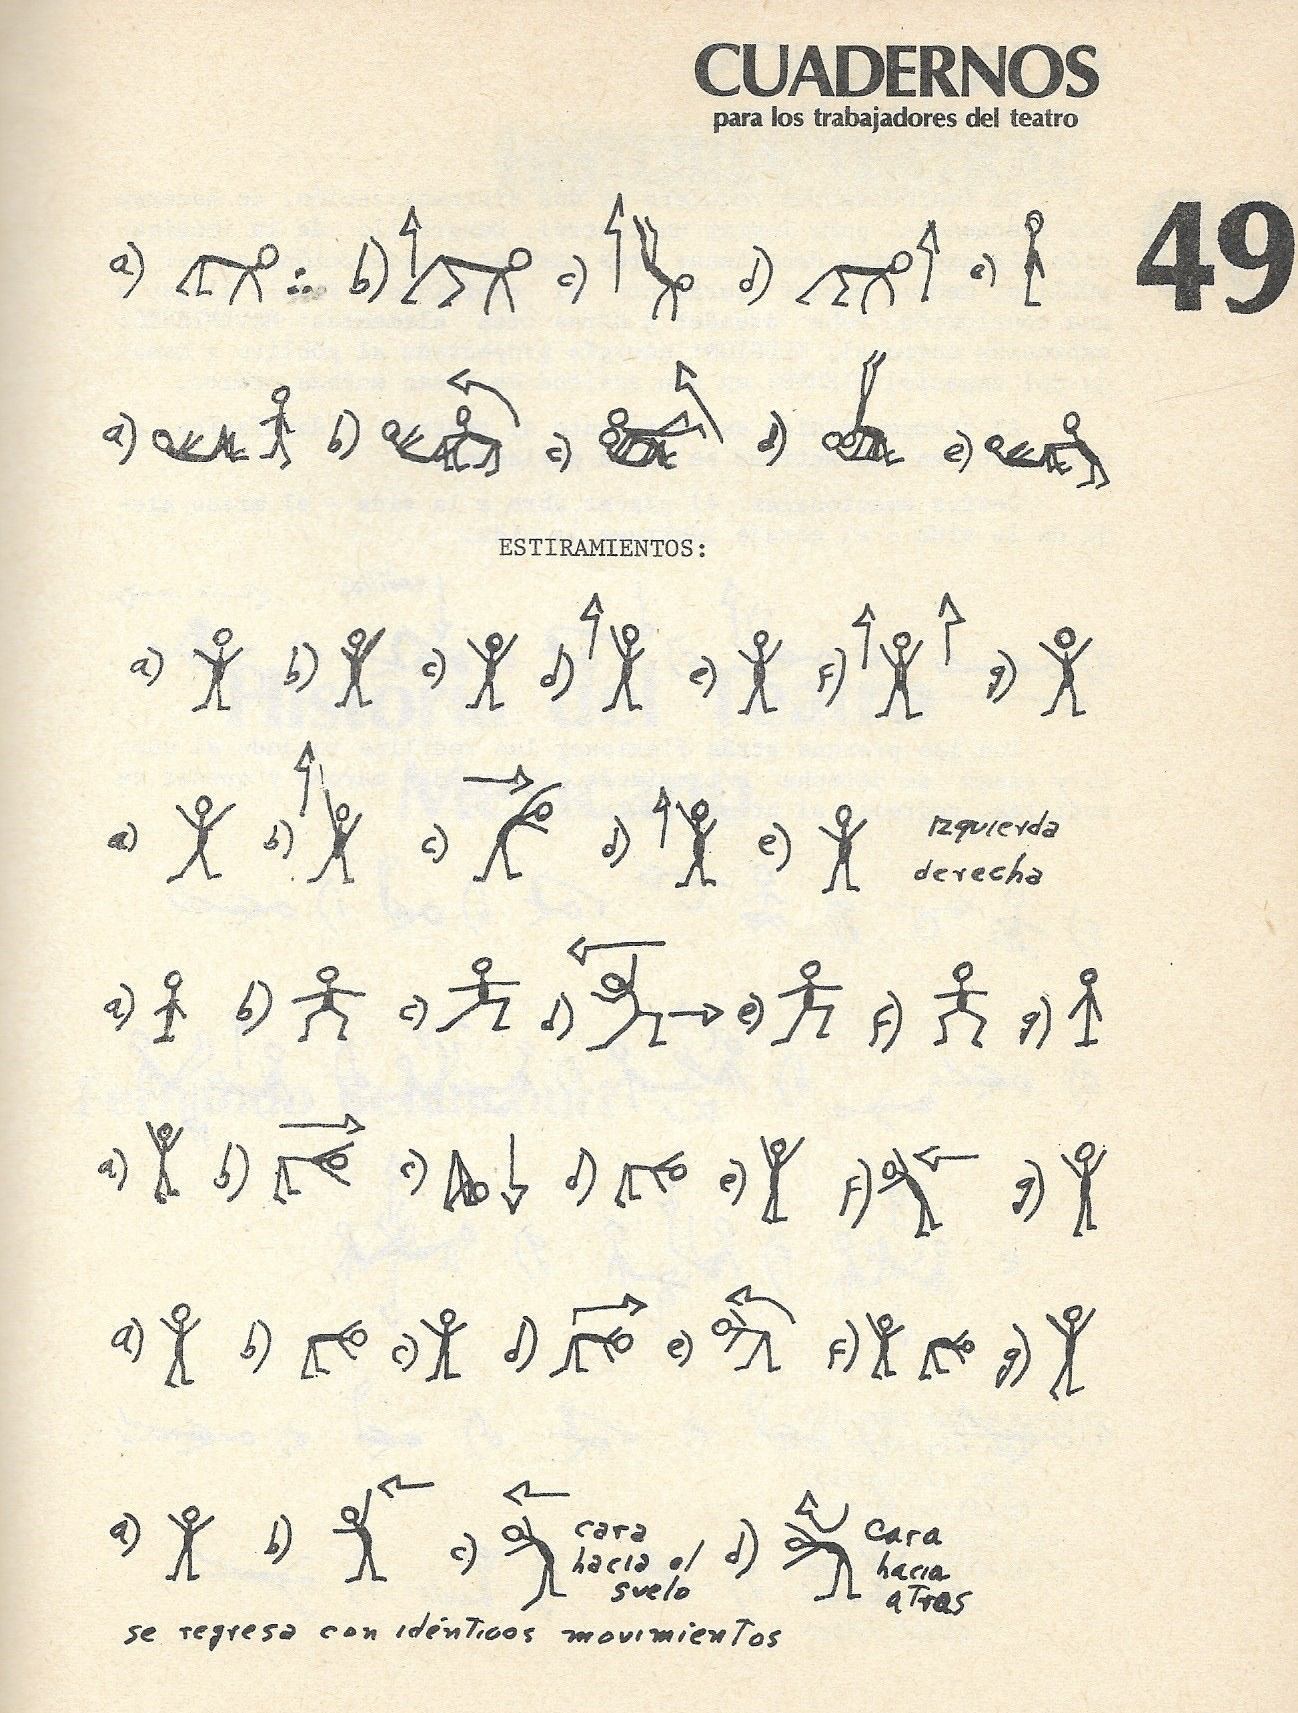 CUADERNOS
para los trabajadores del teatro
49
a) b) c) d) e)
a) b) c) d) e)
ESTIRAMIENTOS:
a) b) c) d) e) f) g)
a) b) c) d) e) Izquierda
derecha
a) b) c) d) e) f) g)
a) b) c) d) e) f) g)
a) b) c) d) e) f) g)
a) b) c) cara
hacia el
suelo
d) Cara
hacia
atras
se regresa con idénticos movimientos